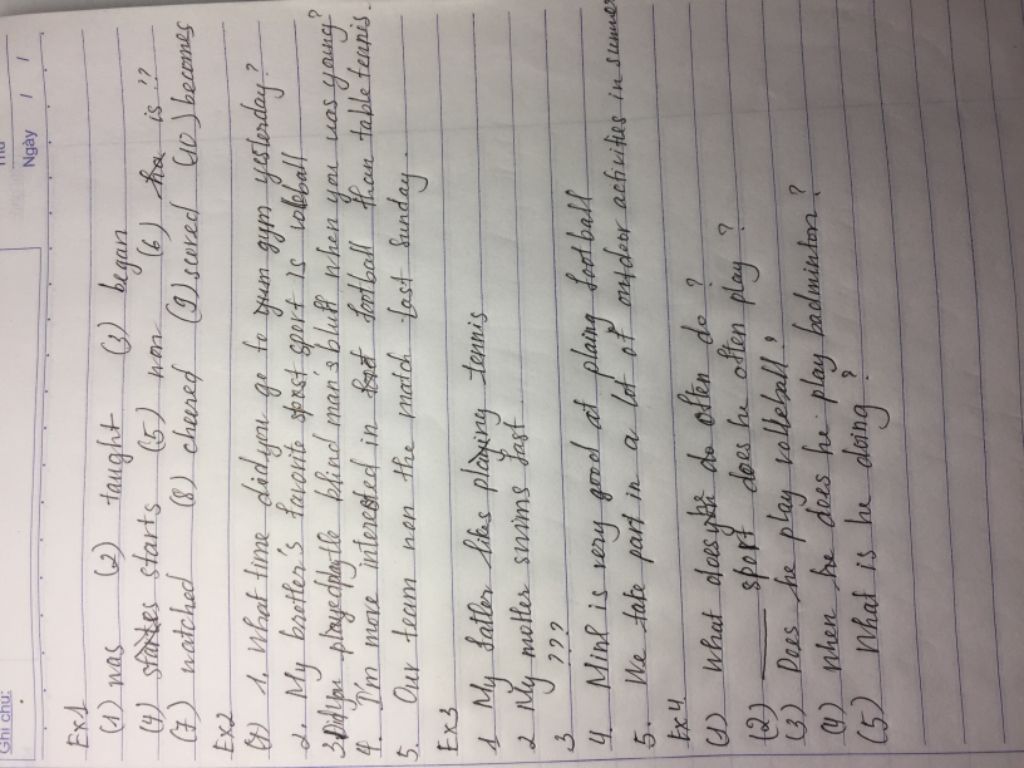 Ghi chú:
Thứ
Ngày / /
Ex1
(1) was (2) taught (3) began
(4) starts (5) won (6) is ??
(7) watched (8) cheered (9) scured (10) becomes
Ex2
(1) 1. What time did you go to gym yesterday?
2. My brother's favarite sport is voleball
3. play blind man's bluff when you was young?
4. I'm more interested in football then table tennis.
5. Our team won the match last Sunday.
Ex3
1 My father likes playing tennis
2 My mother swims fast
3 ???
4. Minh is very good at plaing football
5. We take part in a lot of outdoor activities in summer
Ex4
(1) What does he do often do?
(2) sport does he often play?
(3) Does he play volleball?
(4) When he does he play badminton?
(5) What is he doing?